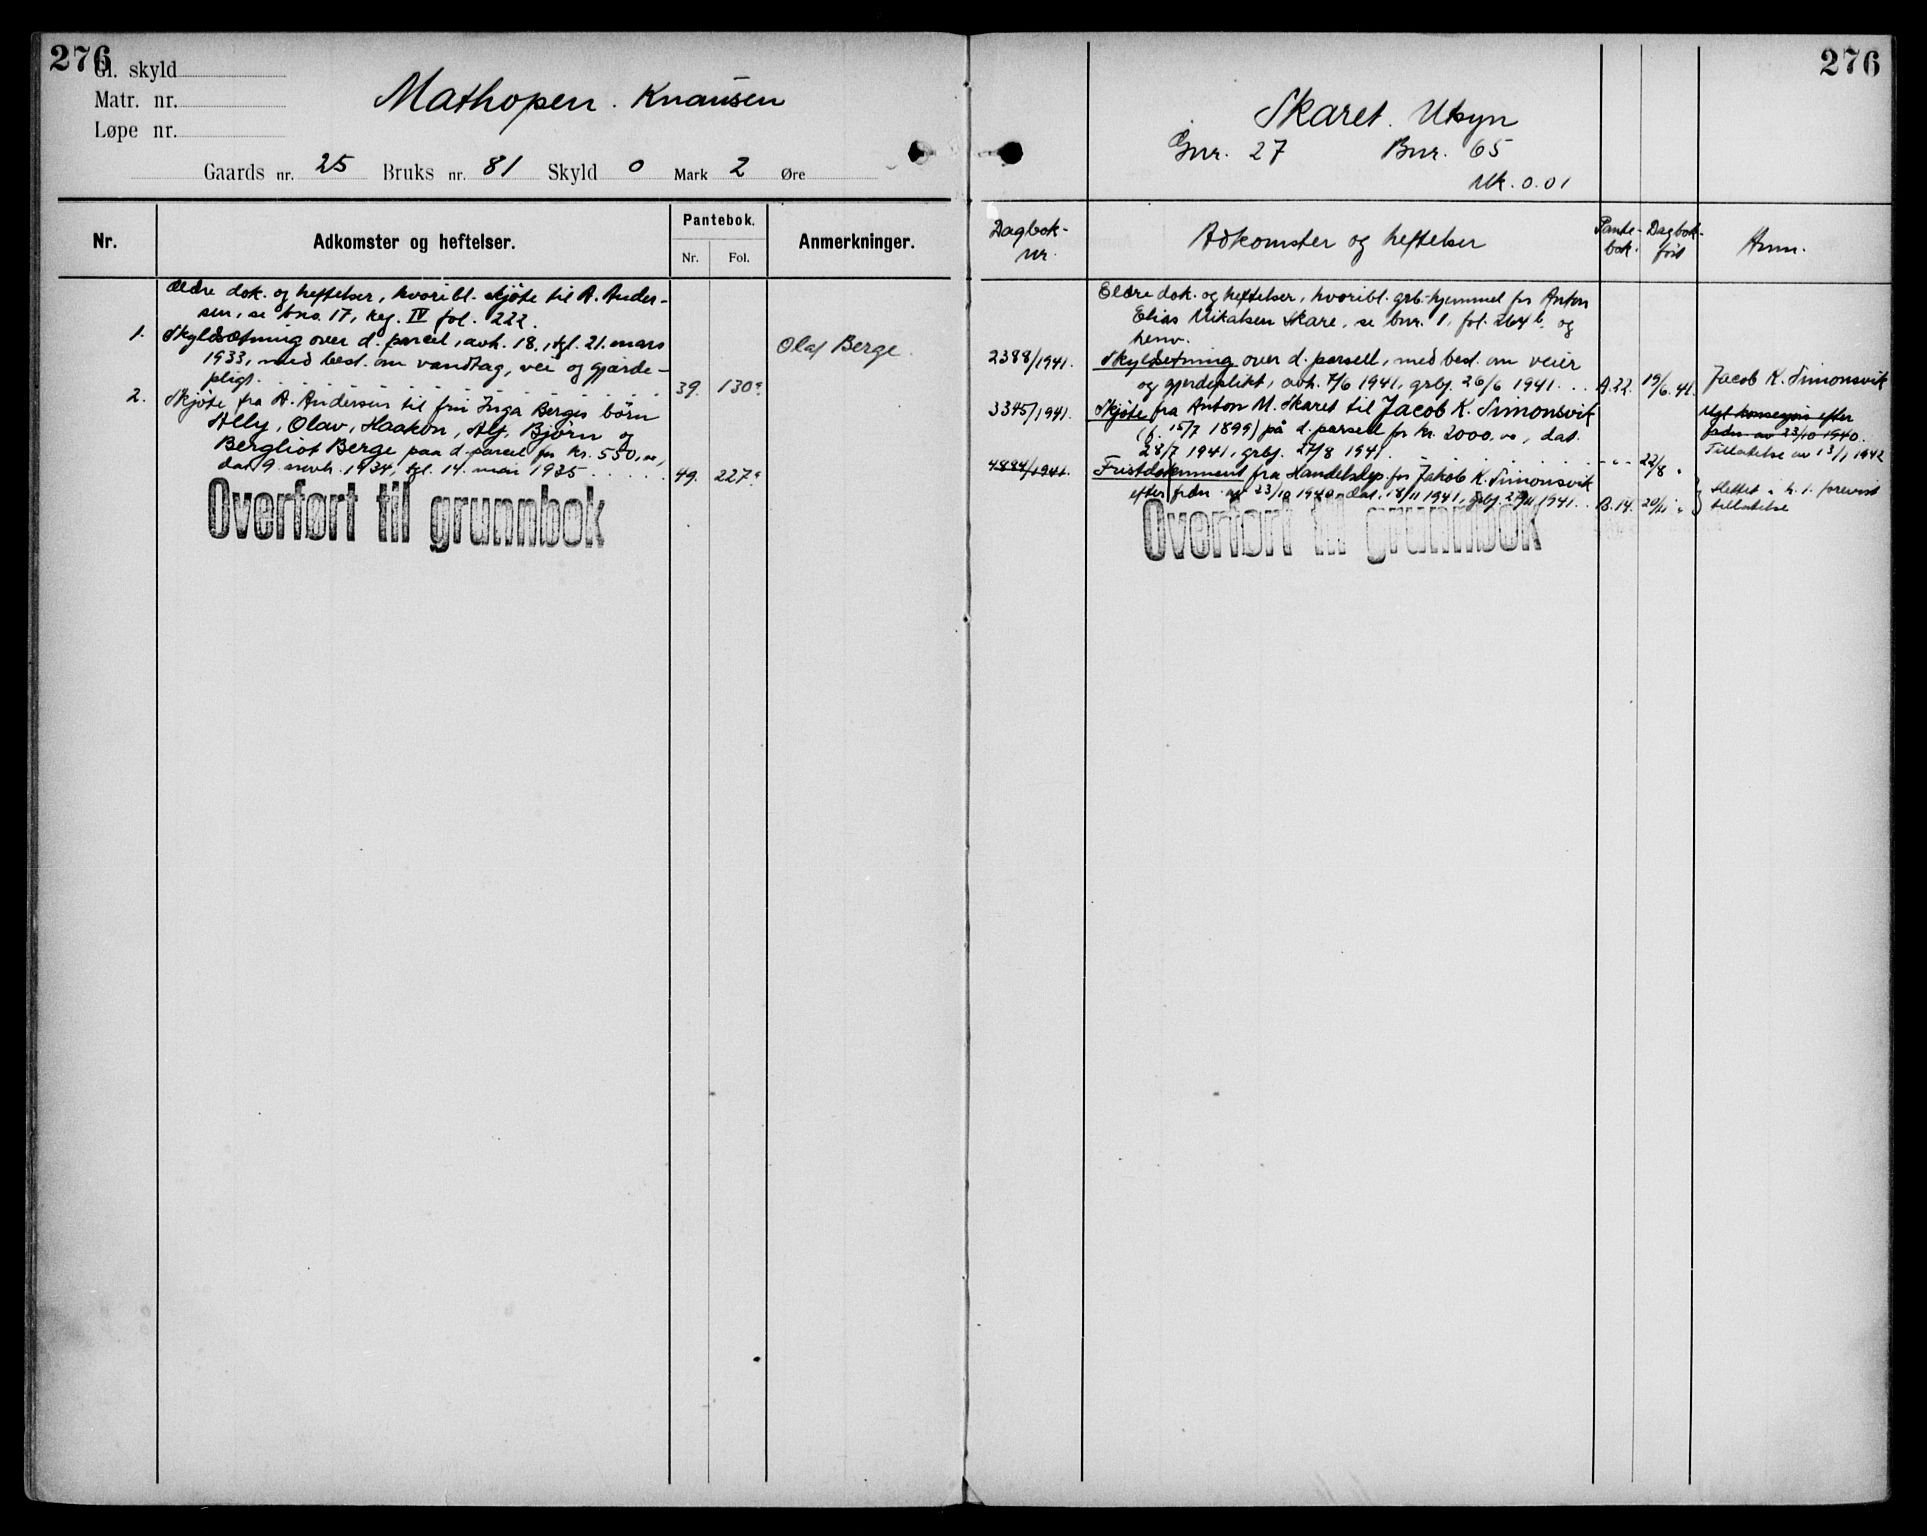 276
Gl. skyld
Matr. nr.
Løpe nr.
Mathopen. Knausen
Gaards nr. 25 Bruks nr. 81 Skyld 0 Mark 2 Øre
Nr. Adkomster og heftelser. Pantebok. Nr. Fol. Anmerkninger.
Ældre dok. og heftelser, hvoribl. skjøte til A. Ander-
sen, se bno. 17, reg. IV fol. 222.
1. Skyldsætning over d. parcel, avh. 18., tgl. 21. mars
1933, med best. om vandtag, vei og gjærde-
pligt. 39. 130a
Olaf Berge.
2. Skjøte fra A. Andersen til fru Inga Berges børn
Ally, Olav, Haakon, Alf, Bjørn og
Bergliot Berge paa d. parcel for kr. 550,00,
dat 9. novb. 1934, tgl. 14. mai 1935 49. 227a
Overført til grunnbok
276
Skaret. Utsyn
Gnr. 27 Bnr. 65
Mk. 0.01
Dagbok-
nr. Adkomster og heftelser Pante-
bok. Dagbok-
ført Anm.
Eldre dok. og heftelser, hvoribl. grb.hjemmel for Anton
Elias Mikalsen Skare, se bnr. 1, fol. 264 b. og
henv.
2388/1941. Skyldsetning over d. parsell, med best. om veier
og gjerdeplikt, avh. 7/6 1941, grbj. 26/6 1941. A.22. 19/6.41. Jacob K. Simonsvik
3345/1941. Skjøte fra Anton M. Skaret til Jacob K. Simonsvik
(f. 15/7 1899) på d. parsell for kr. 2000.00, dat.
28/7 1941, grbj. 27/8 1941. - " - 22/8 "
efter
fordn. av 23/10 1940.
Tillatelse av 13/1 1942
4894/1941. Fristdokument fra Handelsdep for Jakob K. Simonsvik
efter fordn. av 23/10 1940, dat. 18/11 1941, grbj. 27/11 1941. B.14. 20/11 "
Slettet i h. t. forevist
tillatelse
Overført til grunnbok